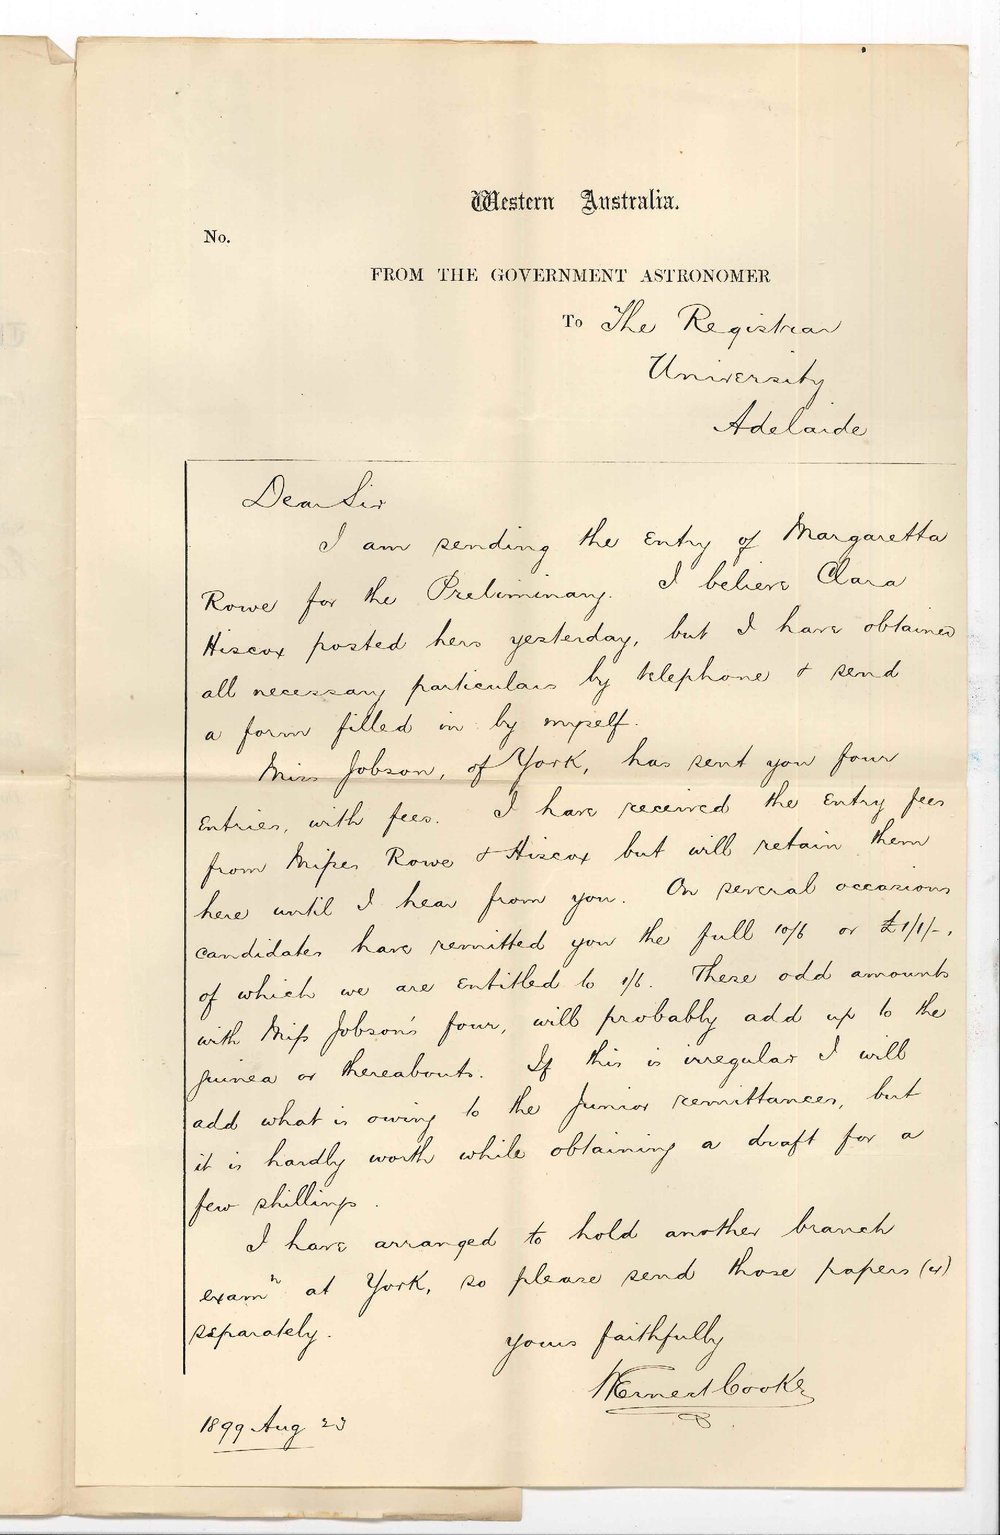 Western Australia.
No.
FROM THE GOVERNMENT ASTRONOMER
To The Registrar
University
Adelaide
Dear Sir
I am sending the Entry of Margaretta
Rowe for the Preliminary. I believe Clara
Hiscox posted hers yesterday, but I have obtained
all necessary particulars by telephone & send
a form filled in by myself.
Miss Jobson, of York, has sent you four
Entries, with fees. I have received the Entry fees
from Misses Rowe & Hiscox but will retain them
here until I hear from you. On several occasions
candidates have remitted you the full 10/6 or £1/1/-,
of which we are entitled to 1/6. These odd amounts
with Miss Jobson's four, will probably add up to the
guinea or thereabouts. If this is irregular I will
add what is owing to the Junior remittances, but
it is hardly worth while obtaining a draft for a
few shillings.
I have arranged to hold another branch
examn at York, so please send those papers (4)
separately.
Yours faithfully
W Ernest Cooke
1899 Aug 23